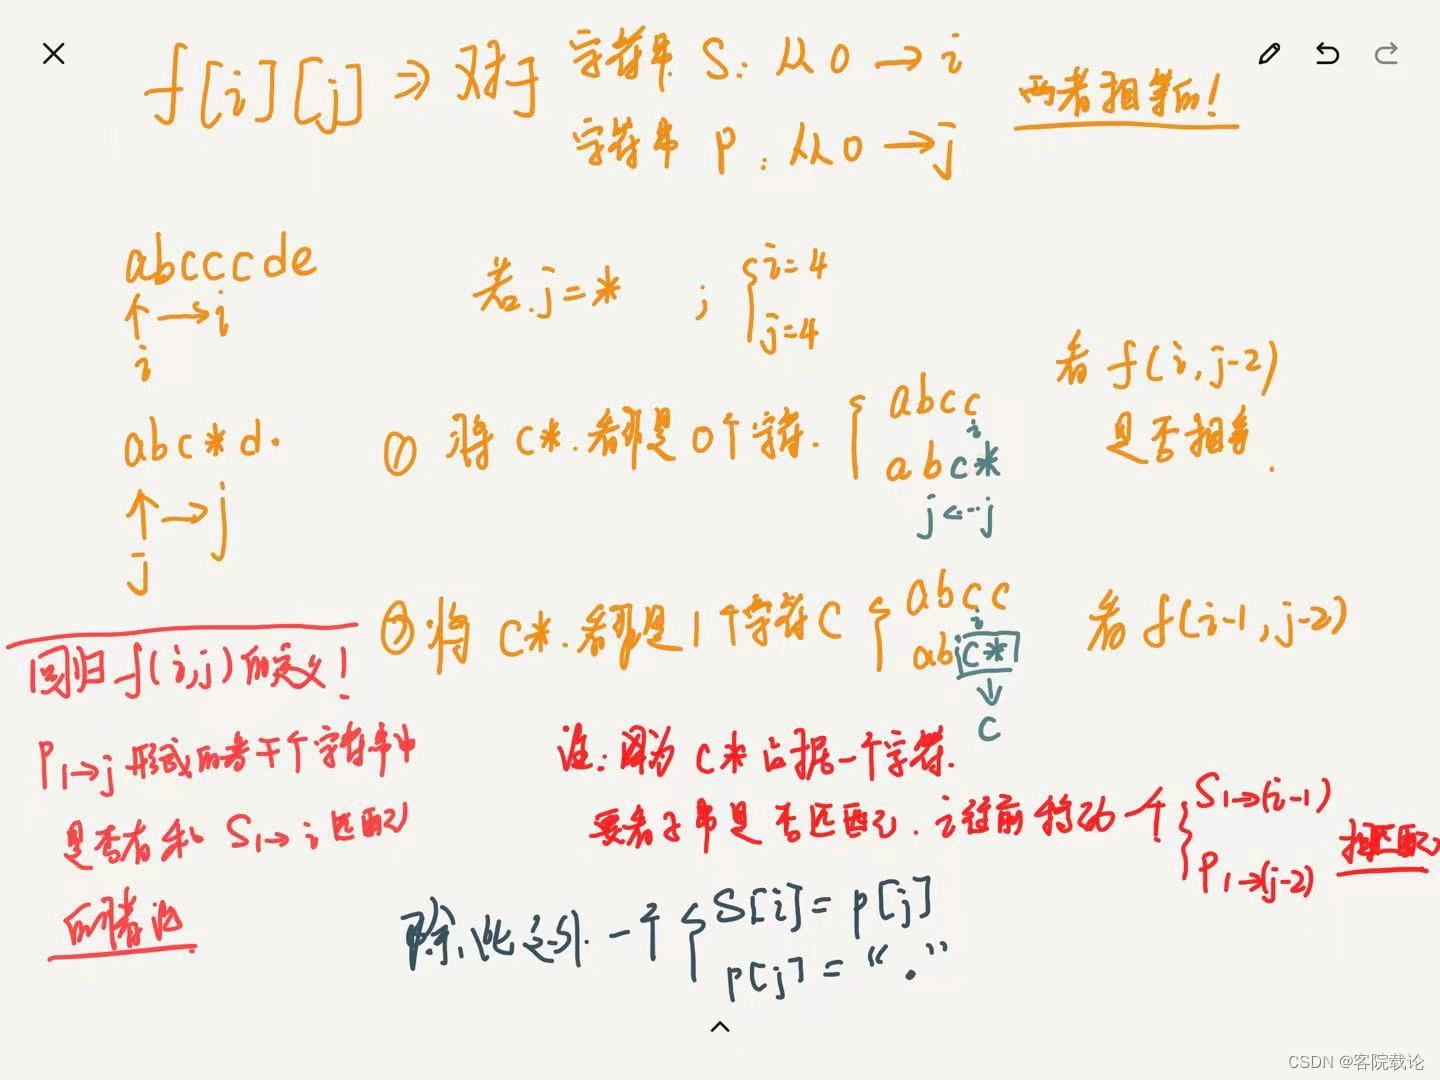 f[i][j] ⇒ 对于 字符串 S: 从 0 → i
字符串 P: 从 0 → j
两者相等的!
abcccde
i → i
若 j=* ; { i=4
j=4
abc*d.
j → j
① 将 c*. 看都是 0个字符. { abcc
i
abc*
j ← j
看 f(i, j-2)
是否相等.
② 将 c*. 看都是 1个字符 C { abcc
i
abc*
↓
c
看 f(i-1, j-2)
回归 f(i,j) 的定义!
P1→j 形成的若干个字符串中
是否有和 S1→i 匹配
的情况
注: 因为 c* 占据一个字符.
要看子串是否匹配, i往前移动一个 { S1→(i-1)
P1→(j-2) 相匹配
除此之外. 一个 { S[i] = p[j]
p[j] = “.”
CSDN @客院载论